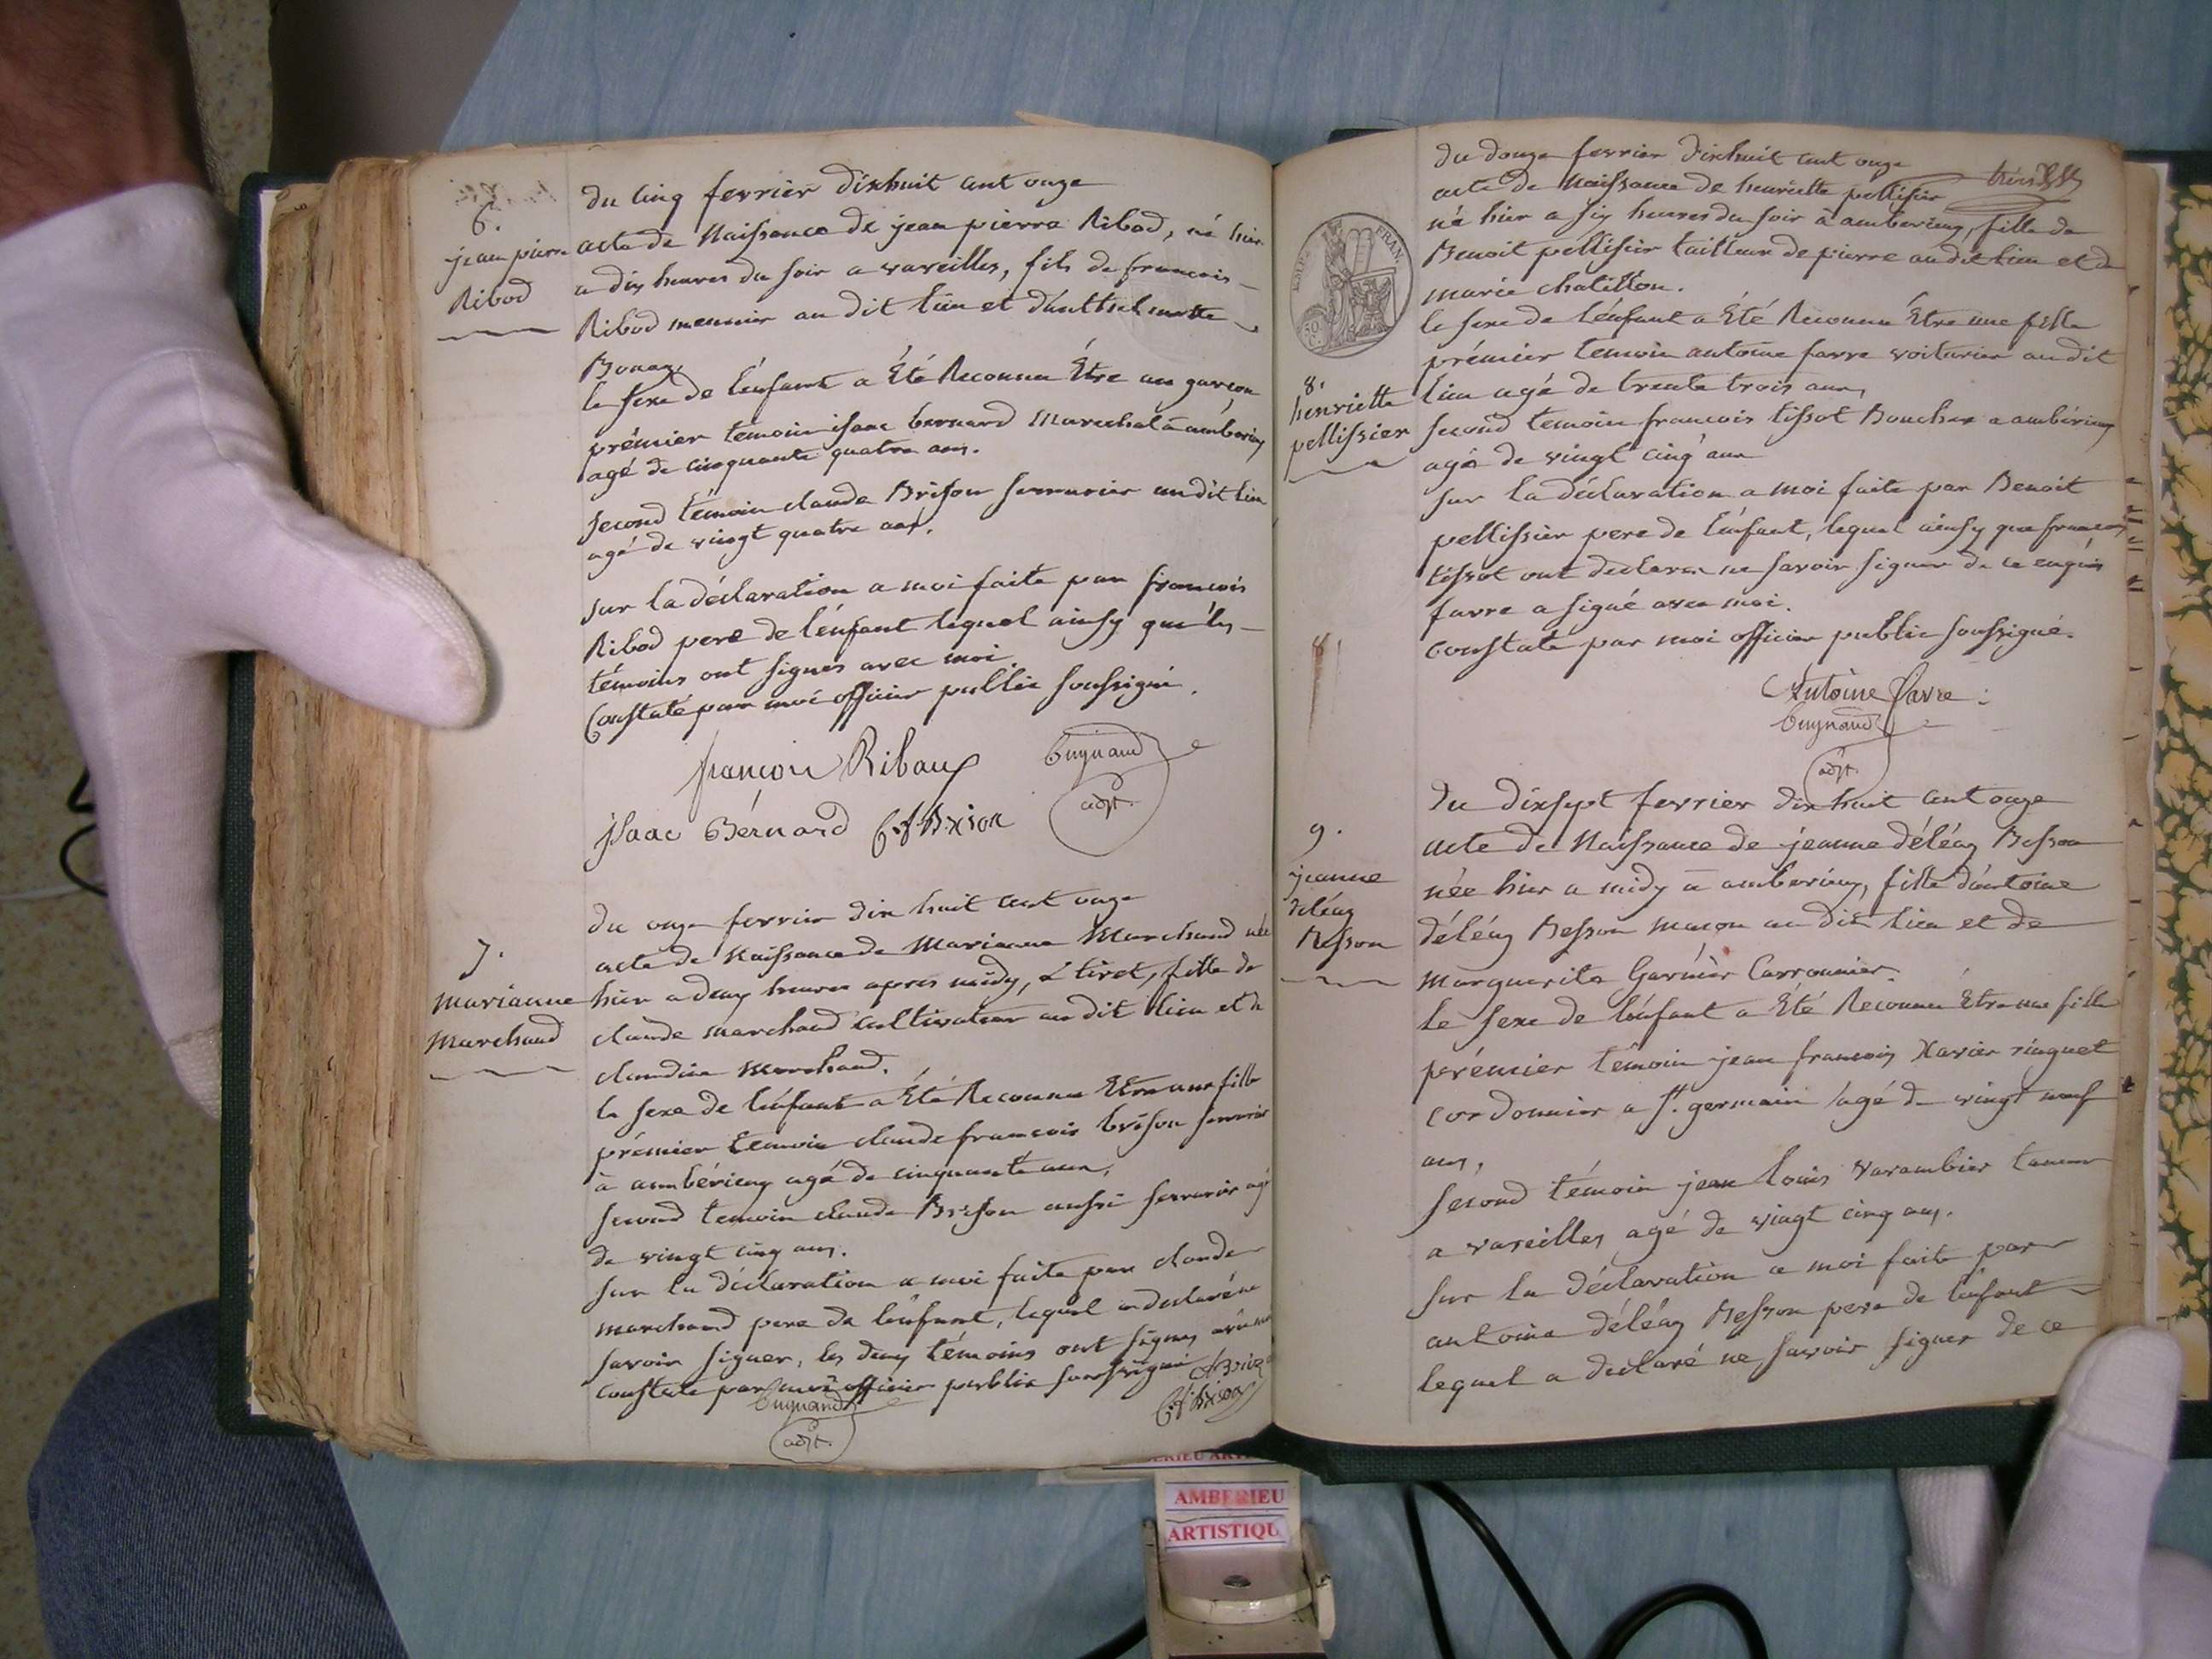 6.
jean pierre
Ribod
du cinq fevrier dixhuit cent onze
acte de Naissance de jean pierre Ribod, né hier
a dix heures du soir a vareilles, fils de francois
Ribod meunier au dit lieu et d'anthelmette
Bonaz.
le sexe de l'énfant a Été Reconnu Être un garçon
prémier témoin isaac bernard Marechal a ambérieu
agé de cinquante quatre ans.
second témoin claude Brison serrurier au dit lieu
agé de vingt quatre ans.
sur la déclaration a moi faite par francois
Ribod pere de l'énfant lequel ainsy que les
témoins ont signes avec moi
Constaté par moi officier public soussigné.
françois Ribaux
Isaac Bérnard C.f Brison
adjt.
7.
Marianne
Marchand
du onze fevrier dix huit cent onze
acte de Naissance de Marianne Marchand née
hier a deux heures apres midy, à tiret, fille de
claude marchand cultivateur au dit lieu et de
claudine Marchand.
le sexe de l'énfant a Été Reconnu Etre une fille
prémier témoin claude francois brison serrurier
à ambérieu agé de cinquante ans,
second temoin claude Brison aussi serrurier agé
de vingt cinq ans.
sur la déclaration a moi faite par claude
marchand pere de l'énfant, lequel a declaré ne
savoir signer, les deux témoins ont signes avec moi
constaté par moi officier public soussigné
C.f Brison
adjt.
EMP. FRAN.
50 C.
8.
henriette
pellissier
du douze fevrier dixhuit cent onze
acte de Naissance de henriette pellisier
né hier a six heures du soir à amberieu, fille de
Benoit pellisier tailleur de pierre au dit lieu et de
marie chatillon.
le sexe de l'énfant a Été Reconnu Être une fille
prémier temoin antoine favre voiturier au dit
lieu agé de trente trois ans,
second temoin francois tissot Boucher a ambérieu
agé de vingt cinq ans
sur la déclaration a moi faite par Benoit
pellissier pere de l'énfant, lequel ainsy que francois
tissot ont declarer ne savoir signer de ce enquis
favre a signé avec moi.
constaté par moi officier public soussigné.
Antoine favre
adjt.
9.
jeanne
déléaz
Besson
du dixsept fevrier dix huit cent onze
acte de Naissance de jeanne déléaz Besson
née hier a midy à amberieu, fille d'antoine
déléaz Besson maçon au dit lieu et de
Marguerite Garnier Carronnier.
le sexe de l'énfant a Été Reconnu Etre une fille
prémier témoin jean francois Xavier ringuet
cordonnier a st. germain agé de vingt neuf
ans,
second témoin jean louis varambier tanneur
a vareilles agé de vingt cinq ans.
sur la déclaration a moi faite par
antoine déléaz Besson pere de l'énfant
lequel a declaré ne savoir signer de ce
AMBERIEU
ARTISTIQU